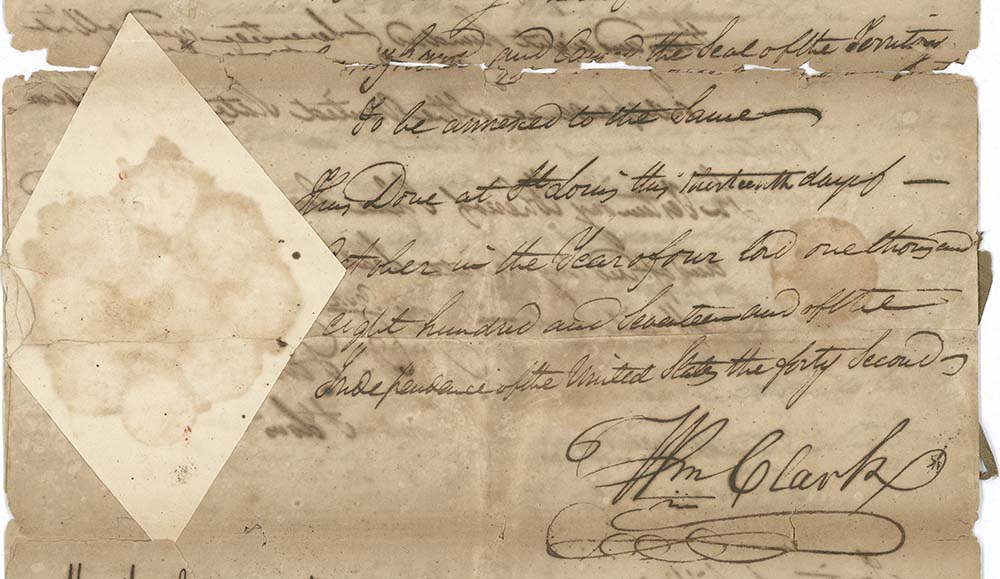 my hand and caused the Seal of the Territory
To be annexed to the Same
Thus Done at St Louis this thirteenth day of
October in the Year of our lord one thousand
eight hundred and Seventeen and of the
Independance of the United States the forty Second
Wm Clark